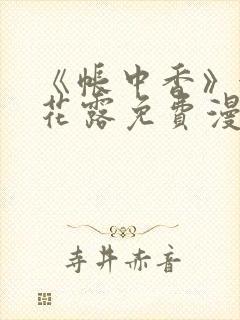 《帐中香》
花露免费漫
寺井赤音